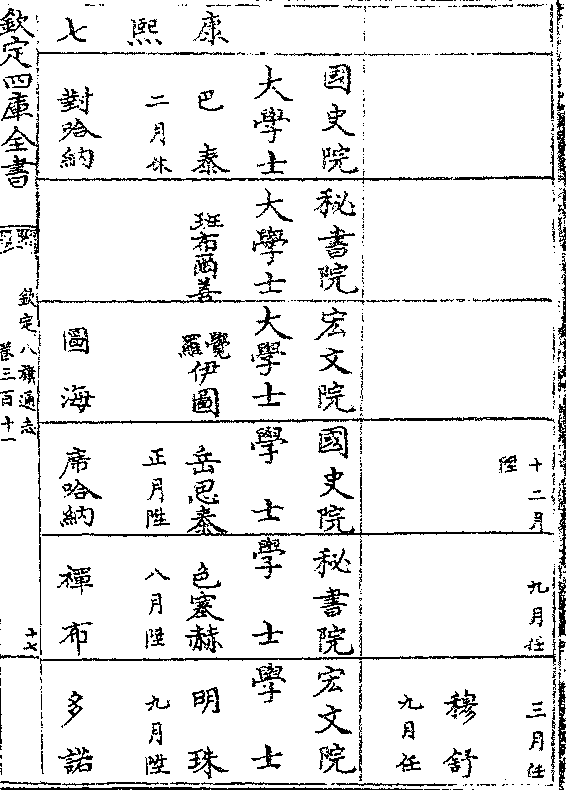 十二月
陞
九月任
三月任
穆舒
九月任
康熙七
國史院
大學士
巴泰
二月休
對哈納
秘書院
大學士
班布爾善
宏文院
大學士
覺羅伊圖
圖海
國史院
學士
岳思泰
正月陞
席哈納
秘書院
學士
色塞赫
八月陞
禪布
宏文院
學士
明珠
九月陞
多諾
欽定四庫全書
欽定八旗通志
卷三百十一
十七